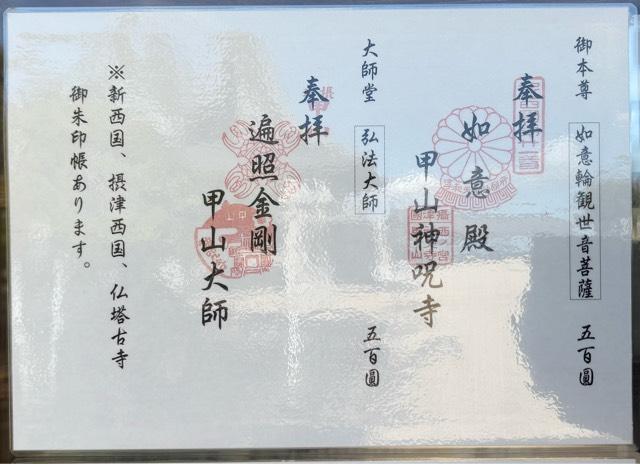 御本尊 如意輪観世音菩薩 五百圓
奉拝
如意殿
甲山神呪寺
大師堂 弘法大師 五百圓
奉拝
遍照金剛
甲山大師
※新西国、摂津西国、仏塔古寺
御朱印帳あります。